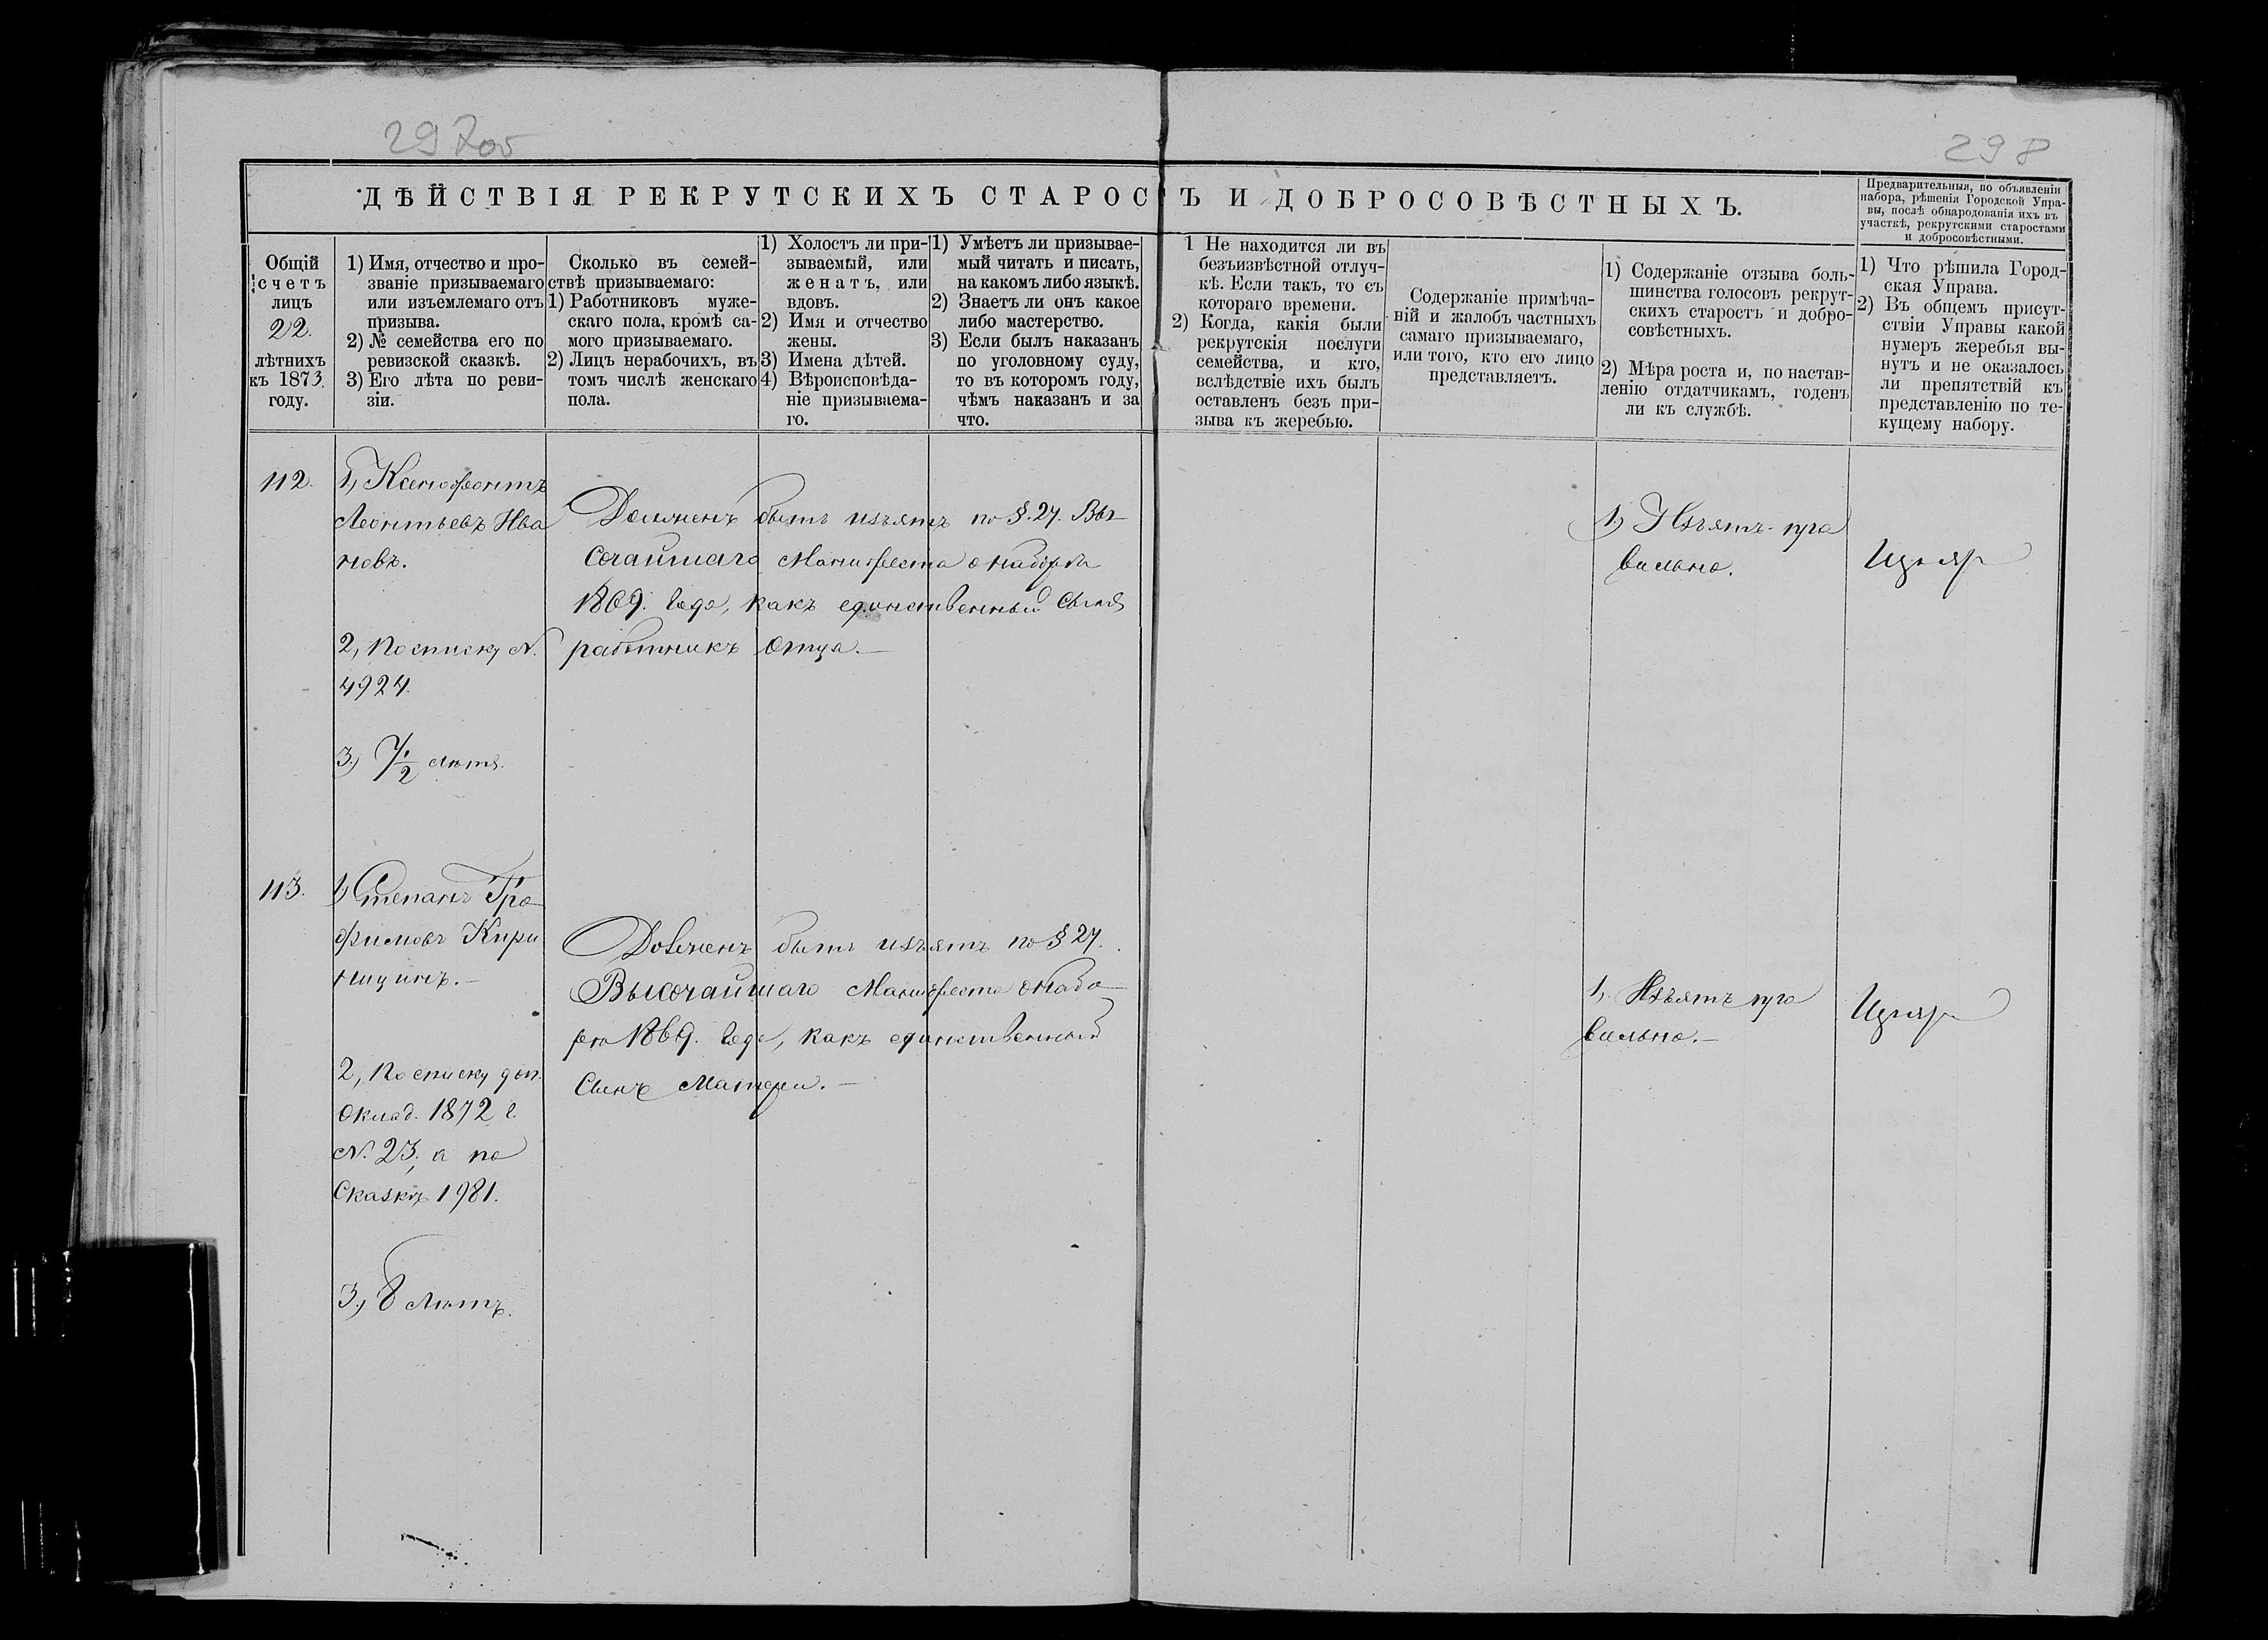 297об
298
ДѢЙСТВІЯ РЕКРУТСКИХЪ СТАРОСТЪ И ДОБРОСОВѢСТНЫХЪ.
Предварительныя, по объявленіи
набора, рѣшенія Городской Упра-
вы, послѣ обнародованія ихъ въ
участкѣ, рекрутскими старостами
и добросовѣстными.
Общій
счетъ
лицъ
22
лѣтнихъ
къ 1873.
году.
1) Имя, отчество и про-
званіе призываемаго
или изъемлемаго отъ
призыва.
2) № семейства его по
ревизской сказкѣ.
3) Его лѣта по реви-
зіи.
Сколько въ семей-
ствѣ призываемаго:
1) Работниковъ муже-
скаго пола, кромѣ са-
мого призываемаго.
2) Лицъ нерабочихъ, въ
томъ числѣ женскаго
пола.
1) Холостъ ли при-
зываемый, или
женатъ, или
вдовъ.
2) Имя и отчество
жены.
3) Имена дѣтей.
4) Вѣроисповѣда-
ніе призываема-
го.
1) Умѣетъ ли призывае-
мый читать и писать,
на какомъ либо языкѣ.
2) Знаетъ ли онъ какое
либо мастерство.
3) Если былъ наказанъ
по уголовному суду,
то въ которомъ году,
чѣмъ наказанъ и за
что.
1 Не находится ли въ
безъизвѣстной отлуч-
кѣ. Если такъ, то съ
котораго времени.
2) Когда, какія были
рекрутскія послуги
семейства, и кто,
вслѣдствіе ихъ былъ
оставленъ безъ при-
зыва къ жеребью.
Содержаніе примѣча-
ній и жалобъ частныхъ
самаго призываемаго,
или того, кто его лицо
представляетъ.
1) Содержаніе отзыва боль-
шинства голосовъ рекрут-
скихъ старостъ и добро-
совѣстныхъ.
2) Мѣра роста и, по настав-
ленію отдатчикамъ, годенъ
ли къ службѣ.
1) Что рѣшила Город-
ская Управа.
2) Въ общемъ присут-
ствіи Управы какой
нумеръ жеребья вы-
нутъ и не оказалось
ли препятствій къ
представленію по те-
кущему набору.
112.
1, Ксенофонтъ
Леонтьевъ Ива
новъ.
2, По списку N.
4924.
3, 7/2 лѣтъ.
Долженъ быть изъятъ по §. 27. Вы-
сочайшаго Манифеста о наборѣ
1869. года, какъ единственный сынъ
работникъ отца.—
1, Изъятъ пра
вильно.
113.
1, Степанъ Тро-
фимовъ Кири
ницинъ.—
2, По списку доп.
оклад. 1872 г.
N. 23, а по
Сказкѣ 1981.
3, 8 лѣтъ.
Долженъ быть изъятъ по § 27.
Высочайшаго Манифеста о набо-
рѣ 1869. года, какъ единственный
сынъ матери.—
1, Изъятъ пра
вильно.—